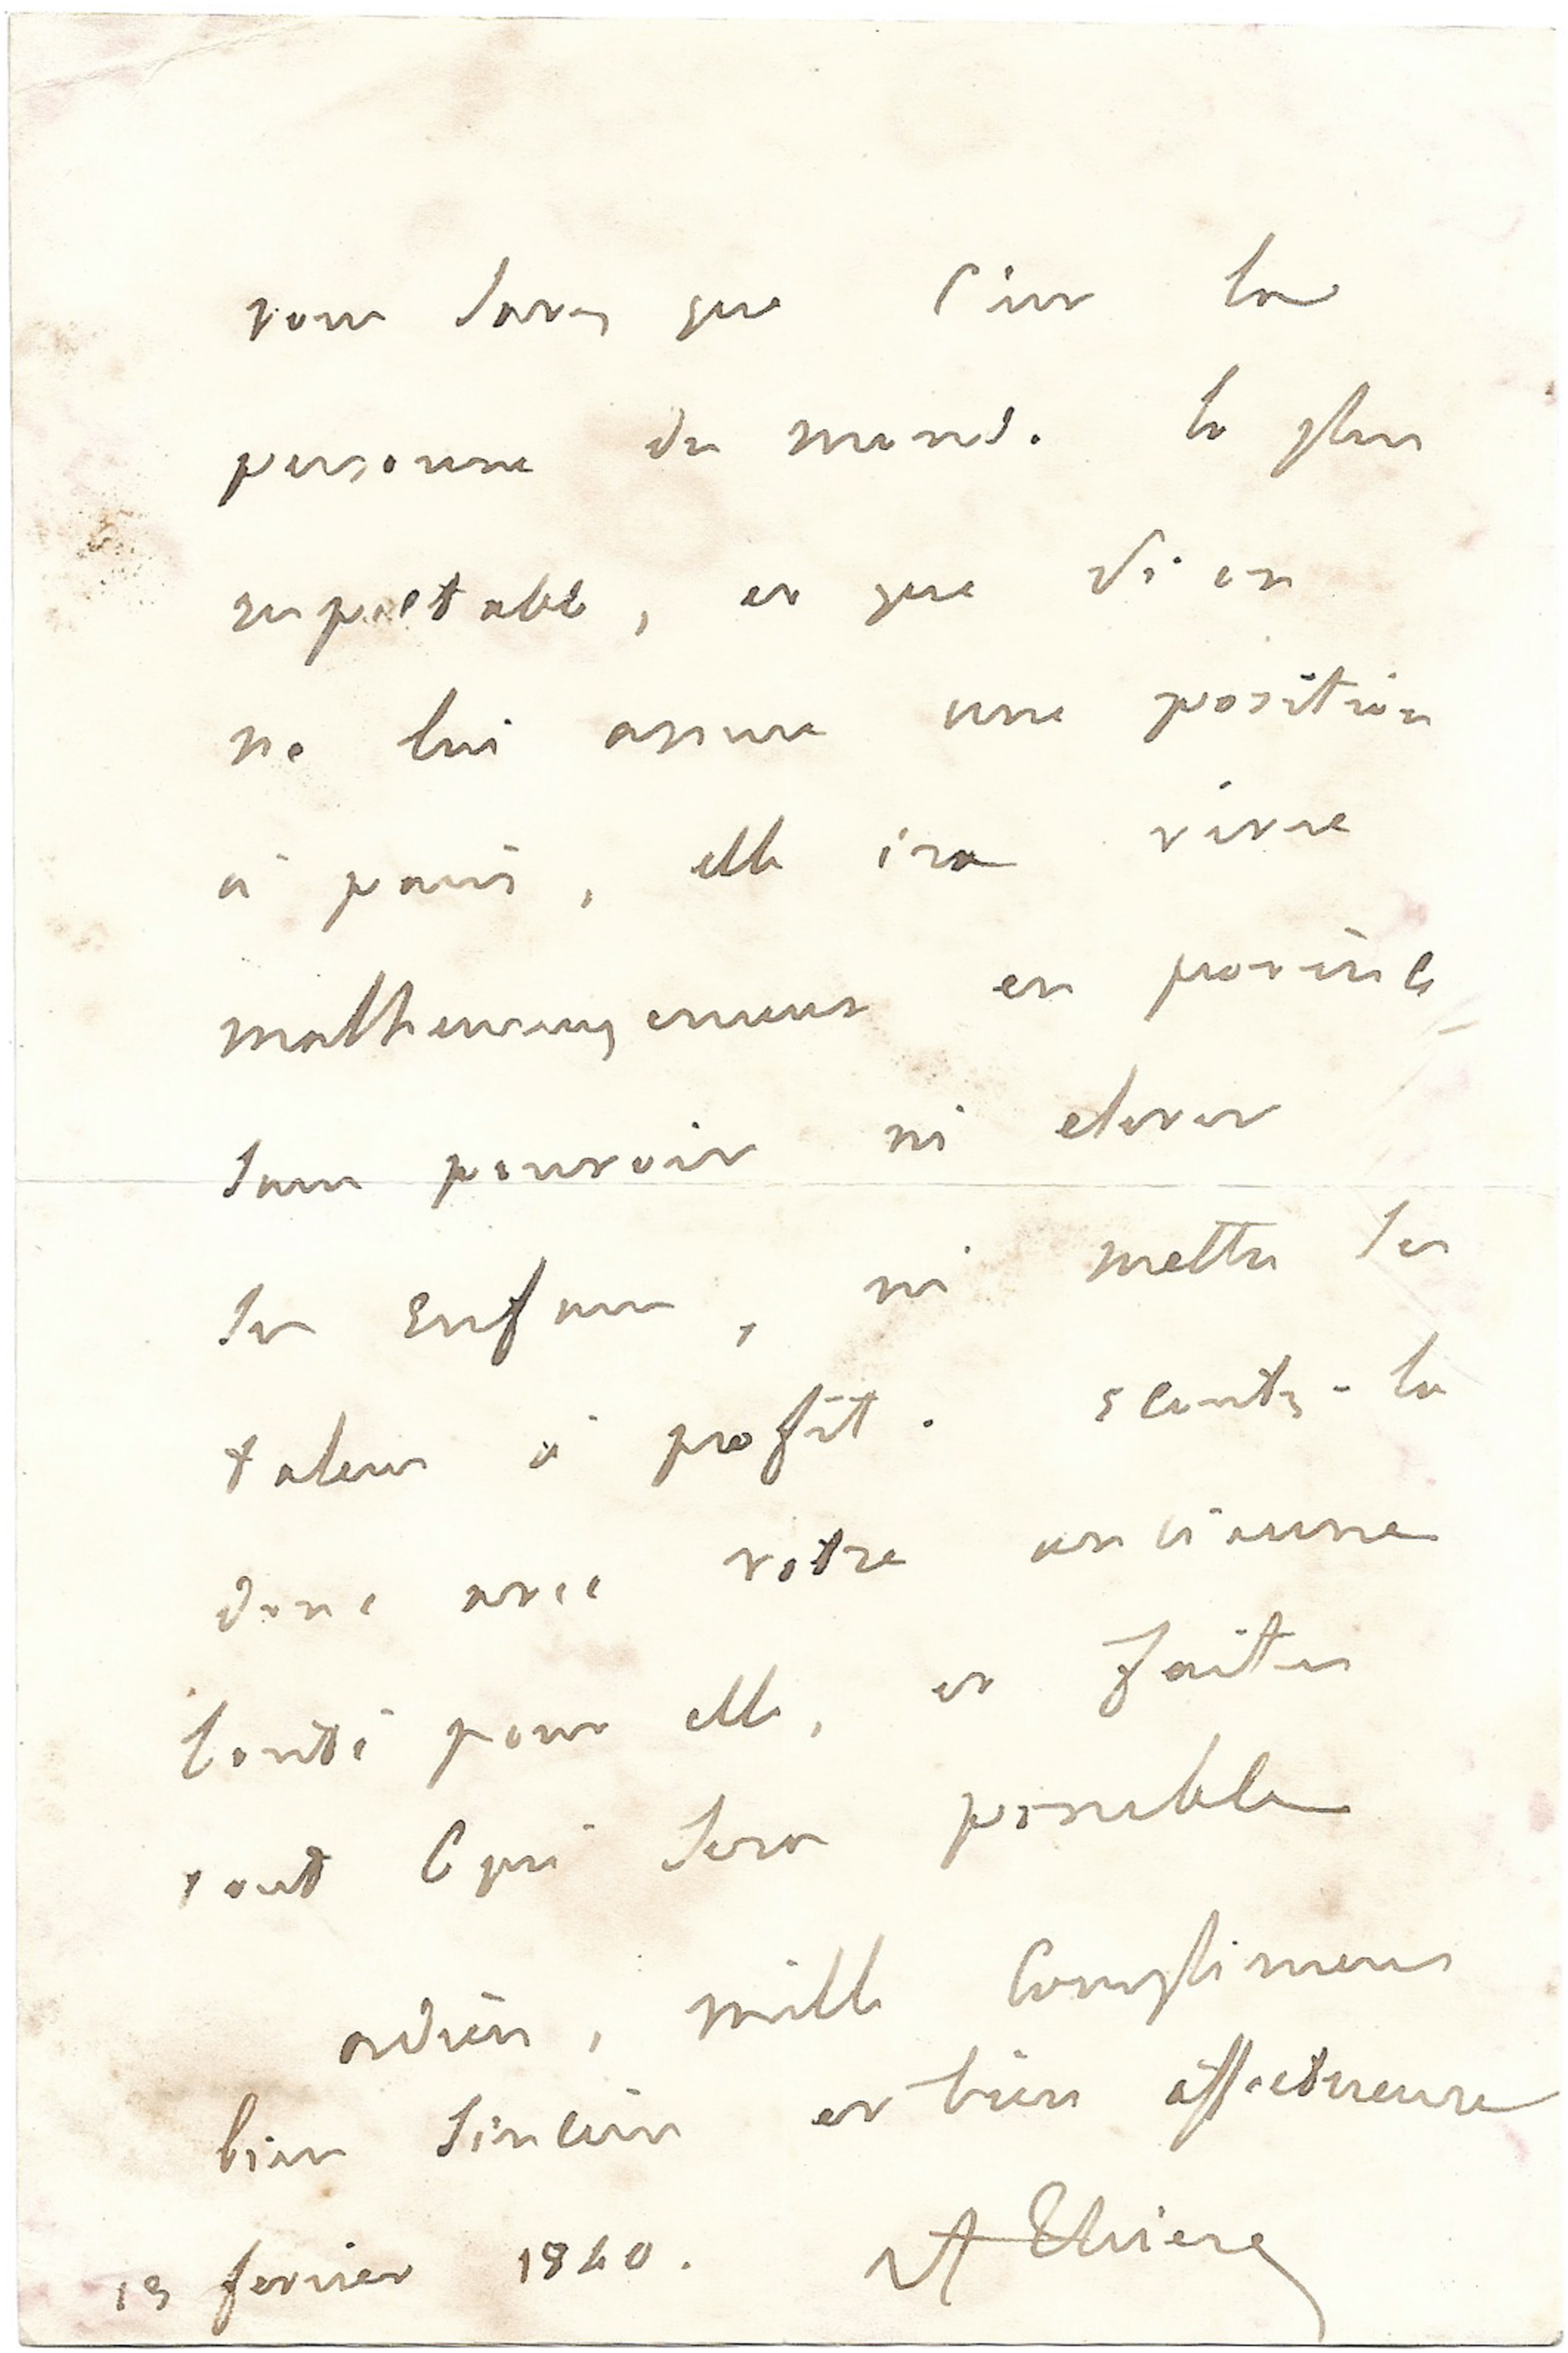 vous savez que c'est la
personne du monde la plus
respectable, et que si on
ne lui assure une position
à paris, elle ira vivre
malheureusement en province
sans pouvoir ni elever
ses enfans, ni mettre ses
talens à profit. ecoutez-la
donc avec votre ancienne
bonté pour elle, et faites
tout ce qui sera possible
adieu, mille complimens
bien sinceres et bien affectueux
fevrier 1840. A Thiers